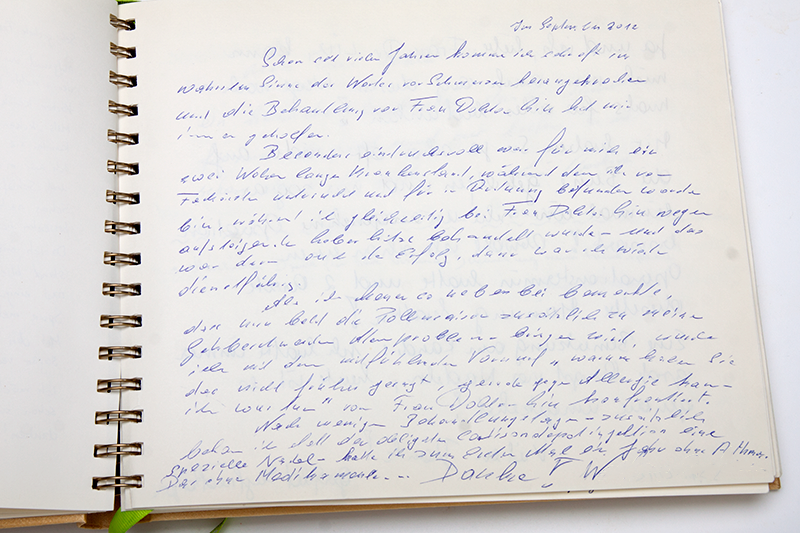 Im September 2012
Schon seit vielen Jahren komme ich oft im
wahrsten Sinne des Wortes vor Schmerzen herangekrochen
und die Behandlung von Frau Doktor hin hat mir
immer geholfen.
Besonders eindrucksvoll war für mich ein
zwei Wochen langer Krankenstand, während dem ich von
Fachärzten untersucht und für in Ordnung befunden worden
bin, während ich gleichzeitig bei Frau Doktor hin wegen
aufsteigender Leberhitze behandelt wurde – und das
war dann auch der Erfolg, dann war ich wieder
dienstfähig.
Als ich dann so nebenbei bemerkte,
dass nun bald die Pollensaison zusätzlich zu meinen
Gehbeschwerden Atemprobleme bringen wird, wurde
ich mit dem mitfühlenden Vorwurf „warum haben Sie
das nicht früher gesagt, gerade gegen Allergie kann
ich was tun" von Frau Doktor hin konfrontiert.
Nach wenigen Behandlungstagen – zusätzlich
bekam ich statt der üblichen Cortisondepotinjektion eine
spezielle Nadel – hatte ich zum ersten Mal ein Jahr ohne
Das ohne Medikamente... Danke W